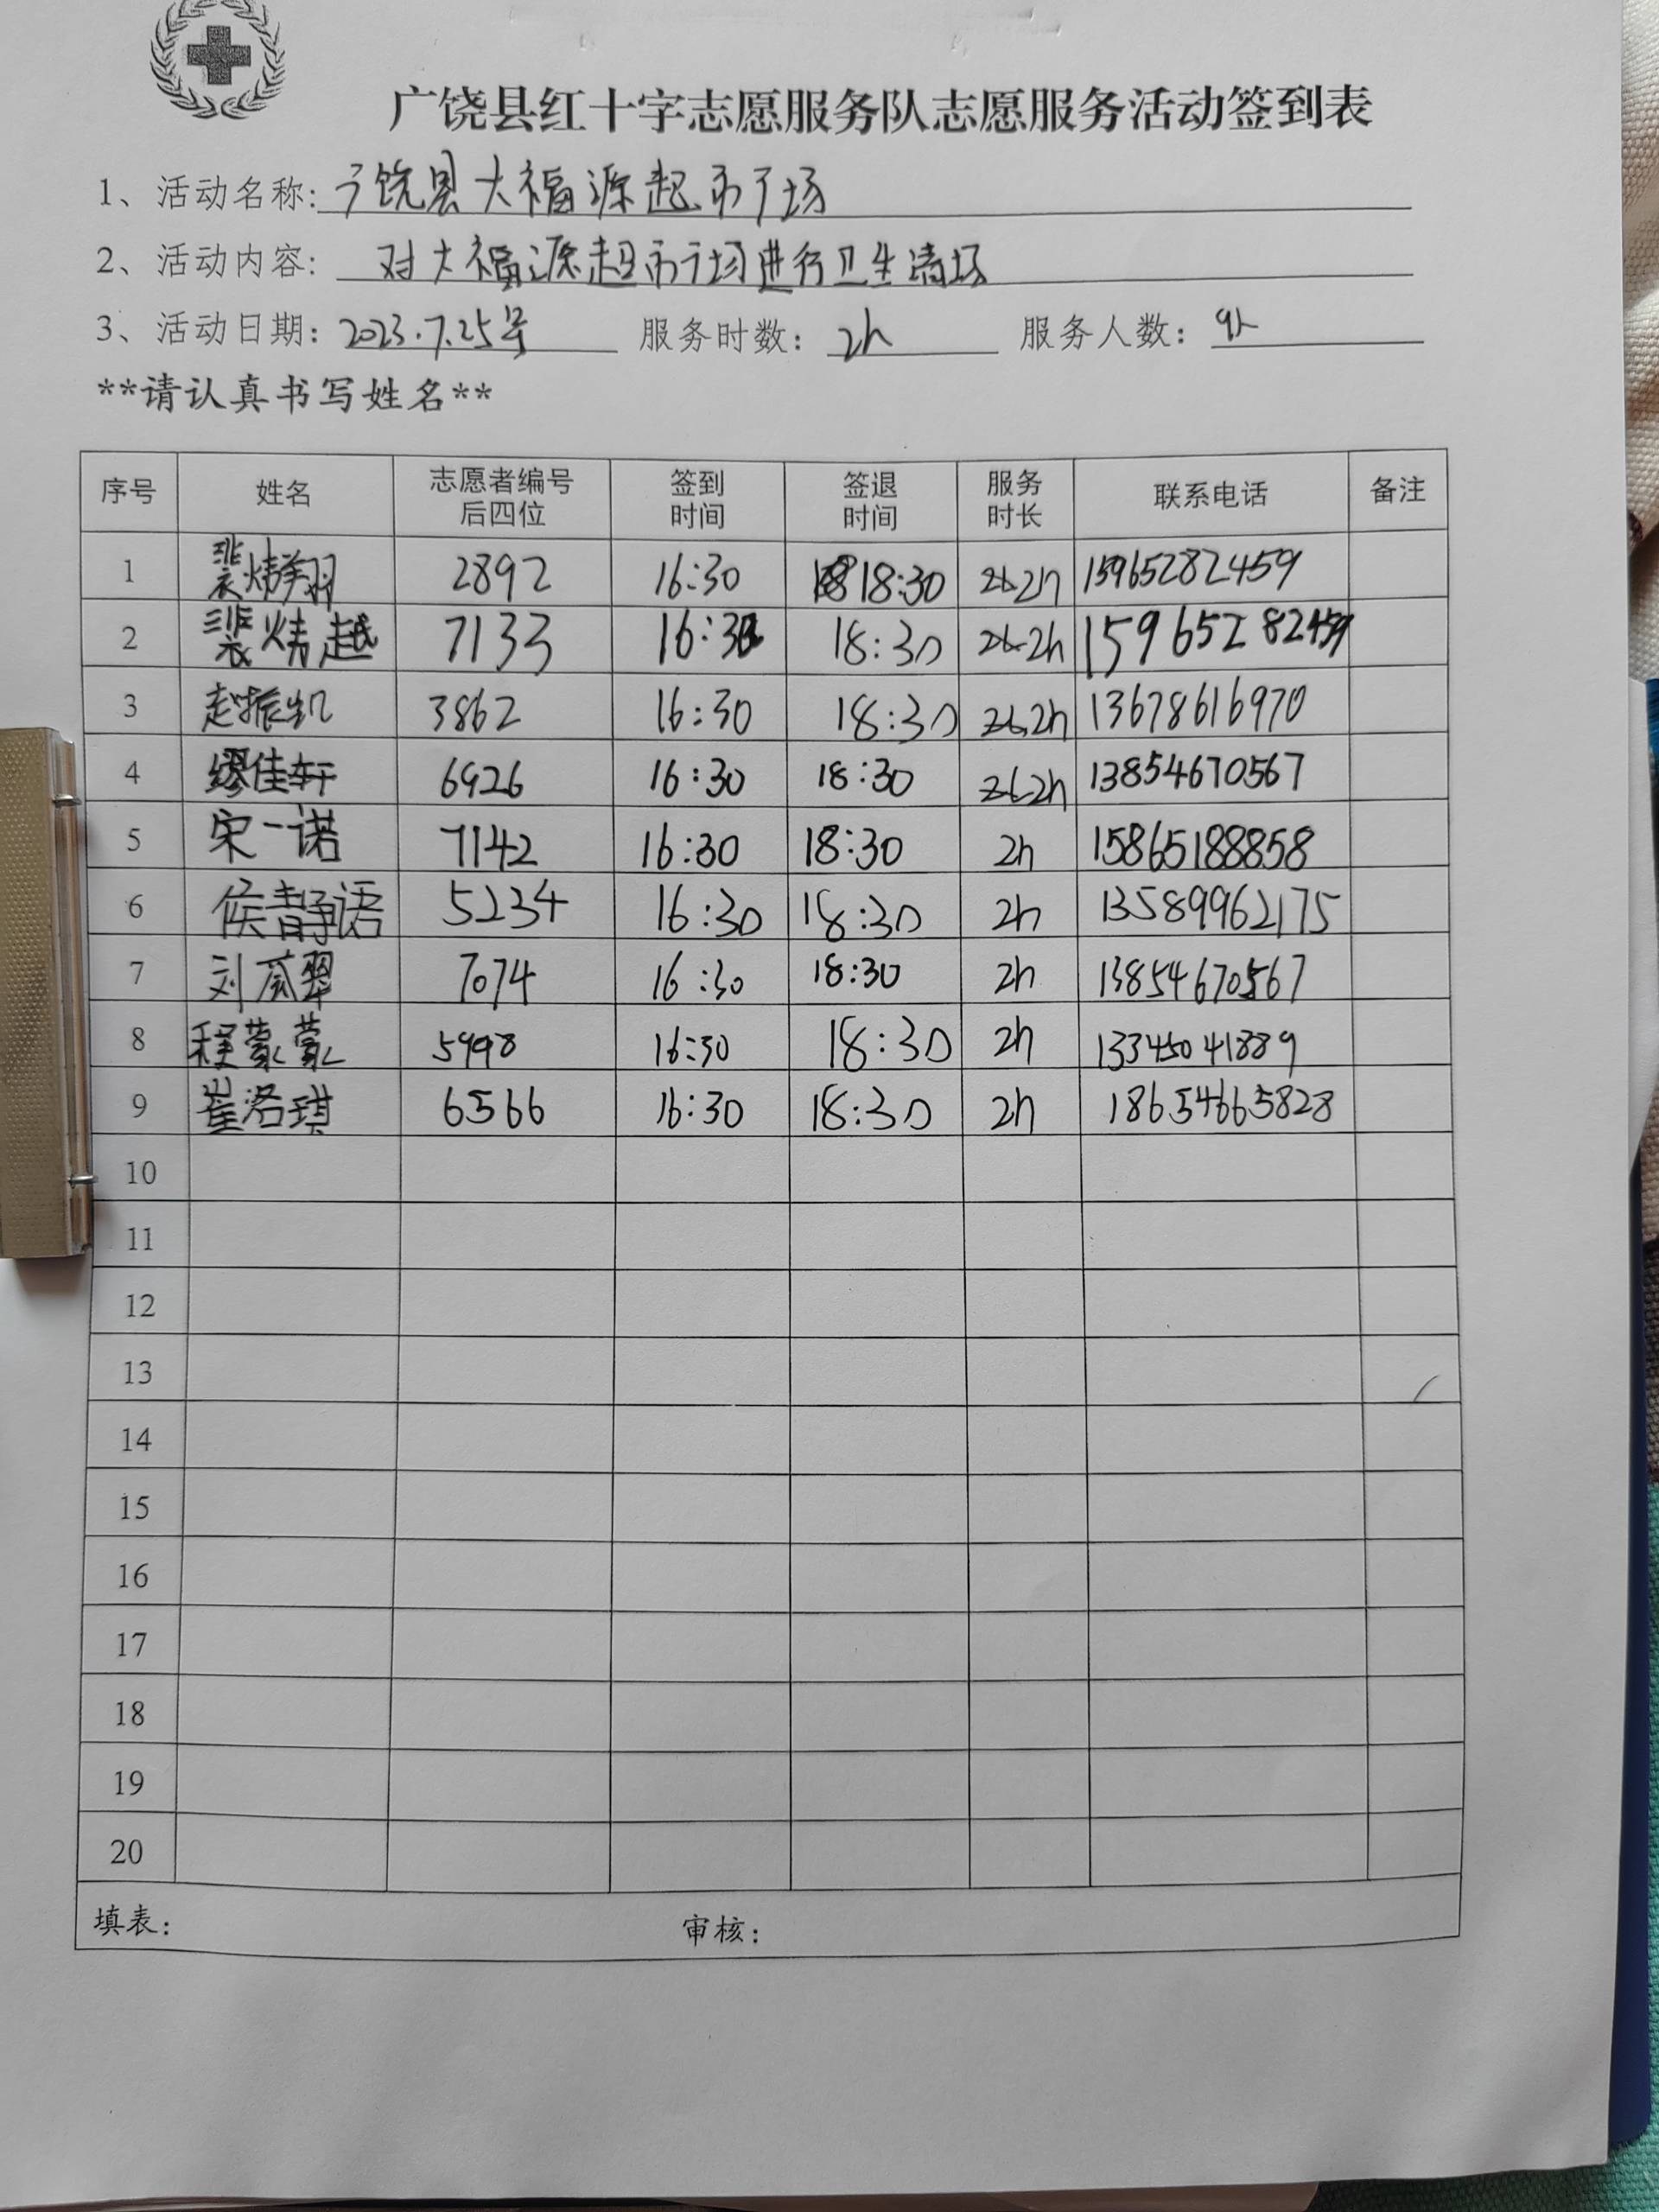 广饶县红十字志愿服务队志愿服务活动签到表
1、活动名称: 广饶县大福源超市广场
2、活动内容: 对大福源超市广场进行卫生清场
3、活动日期: 2023.7.25号 服务时数: 2h 服务人数: 9人
**请认真书写姓名**
序号 姓名 志愿者编号后四位 签到时间 签退时间 服务时长 联系电话 备注
1 2892 16:30 18:30 2h 15965282459
2 7133 16:30 18:30 2h 15965282459
3 赵振凯 3862 16:30 18:30 2h 13678616970
4 缪佳轩 6926 16:30 18:30 2h 13854670567
5 宋一诺 7142 16:30 18:30 2h 15865188858
6 侯静语 5234 16:30 18:30 2h 13589962175
7 刘 7074 16:30 18:30 2h 13854670567
8 程蒙蒙 5998 16:30 18:30 2h 13345041889
9 崔洛琪 6566 16:30 18:30 2h 18654665828
10
11
12
13
14
15
16
17
18
19
20
填表: 审核: